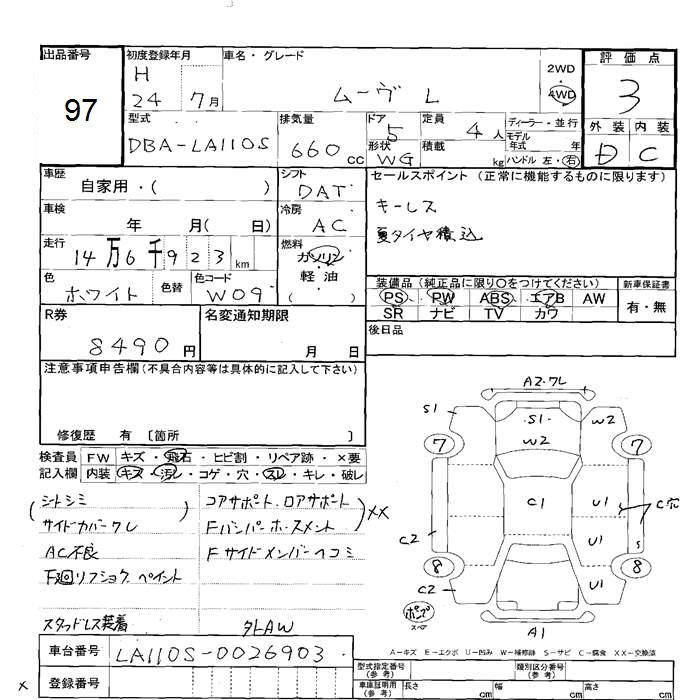 出品番号
97
初度登録年月
H
24 7月
車名・グレード
ムーヴ L
2WD
・
4WD
評価点
3
外装 内装
D C
型式
DBA-LA110S
排気量
660 cc
ドア
5
形状
WG
定員
4人
積載
kg
ディーラー・並行
モデル
年式 年
ハンドル 左・右
車歴
自家用・( )
シフト
DAT
セールスポイント (正常に機能するものに限ります)
キーレス
夏タイヤ積込
車検
年 月( 日)
冷房
AC
走行
14万6千923km
燃料
ガソリン
軽油
( )
色
ホワイト
色替
色コード
W09
装備品 (純正品に限り○をつけてください)
PS PW ABS エアB AW
SR ナビ TV カワ
新車保証書
有・無
R券
8490円
名変通知期限
月 日
後日品
注意事項申告欄 (不具合内容等は具体的に記入して下さい)
修復歴 有 〔箇所 〕
検査員
記入欄
FW キズ・飛石・ヒビ割・リペア跡・×要
内装 キズ・汚レ・コゲ・穴・スレ・キレ・破レ
(シトシミ )
サイドカバーワレ
AC不良
下廻リフショク、ペイント
スタッドレス装着
コアサポート、ロアサポート
Fバンパーホースメント )××
Fサイドメンバーヘコミ
外AW
A2・ワレ
S1
S1
W2
W2
7
7
C1
U1
C穴
C2
U1
S
8
8
C2
U1
ポンプ
スペア
A1
A―キズ E―エクボ U―凹み W―補修跡 S―サビ C―腐食 XX―交換済
車台番号
LA110S-0026903
登録番号
×
型式指定番号
(参考)
類別区分番号
(参考)
車庫証明用
(参考)
長さ cm
幅 cm
高さ cm